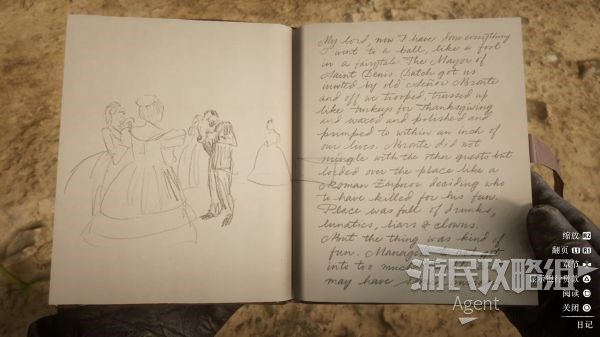 My lord, now I have done everything
I went to a ball, like a fool
in a fairytale. The Mayor of
Saint Denis. Dutch got us
invited by old Señor Bronte
and off we trooped, trussed up
like turkeys for Thanksgiving
and waxed and polished and
primped to within an inch of
our lives. Bronte did not
mingle with the other guests but
lorded over the place like a
Roman Emperor deciding who
to have killed for his fun.
Place was full of drunks,
lunatics, liars & clowns.
But the thing was kind of
fun.
into too much
may have
游民攻略组
Agent
缩放 R2
翻页 L1 R1
阅读
关闭
日记